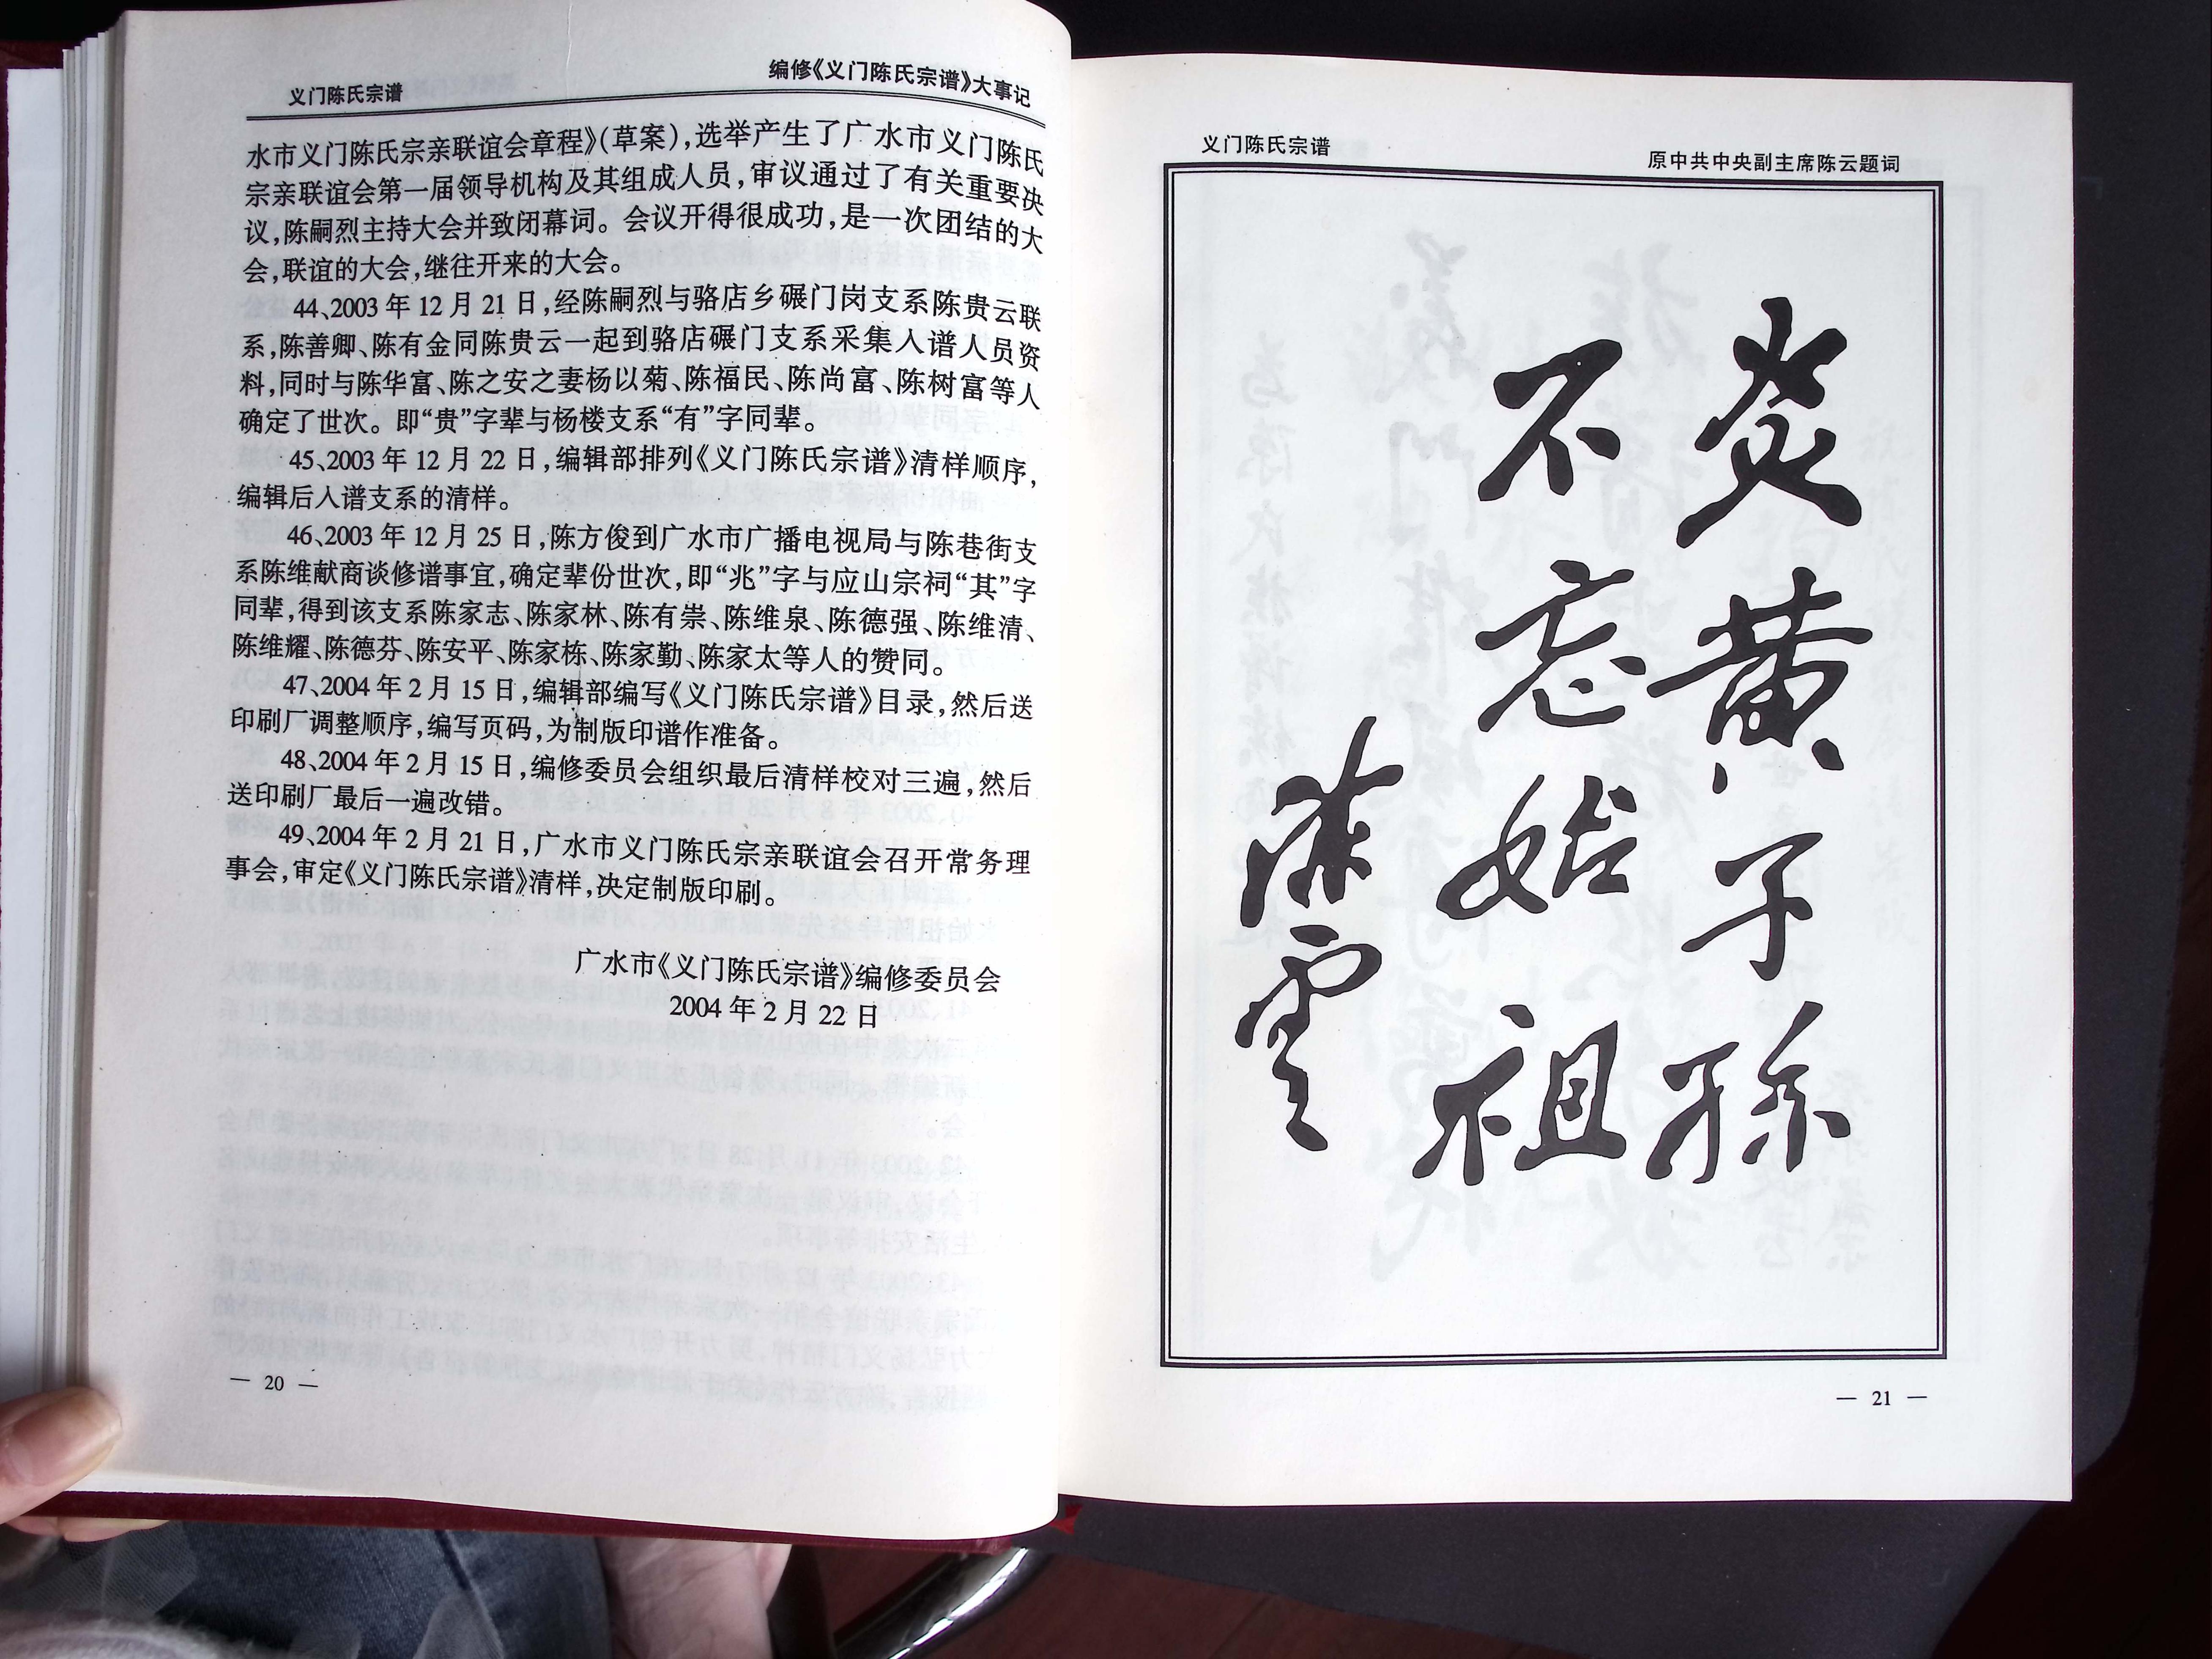 义门陈氏宗谱
编修《义门陈氏宗谱》大事记
水市义门陈氏宗亲联谊会章程》(草案),选举产生了广水市义门陈氏
宗亲联谊会第一届领导机构及其组成人员,审议通过了有关重要决
议,陈嗣烈主持大会并致闭幕词。会议开得很成功,是一次团结的大
会,联谊的大会,继往开来的大会。
44、2003年12月21日,经陈嗣烈与骆店乡碾门岗支系陈贵云联
系,陈善卿、陈有金同陈贵云一起到骆店碾门支系采集入谱人员资
料,同时与陈华富、陈之安之妻杨以菊、陈福民、陈尚富、陈树富等人
确定了世次。即“贵”字辈与杨楼支系“有”字同辈。
45、2003年12月22日,编辑部排列《义门陈氏宗谱》清样顺序,
编辑后入谱支系的清样。
46、2003年12月25日,陈方俊到广水市广播电视局与陈巷街支
系陈维献商谈修谱事宜,确定辈份世次,即“兆”字与应山宗祠“其”字
同辈,得到该支系陈家志、陈家林、陈有崇、陈维泉、陈德强、陈维清、
陈维耀、陈德芬、陈安平、陈家栋、陈家勤、陈家太等人的赞同。
47、2004年2月15日,编辑部编写《义门陈氏宗谱》目录,然后送
印刷厂调整顺序,编写页码,为制版印谱作准备。
48、2004年2月15日,编修委员会组织最后清样校对三遍,然后
送印刷厂最后一遍改错。
49、2004年2月21日,广水市义门陈氏宗亲联谊会召开常务理
事会,审定《义门陈氏宗谱》清样,决定制版印刷。
广水市《义门陈氏宗谱》编修委员会
2004年2月22日
— 20 —
义门陈氏宗谱
原中共中央副主席陈云题词
炎黄子孙
不忘始祖
陈云
— 21 —